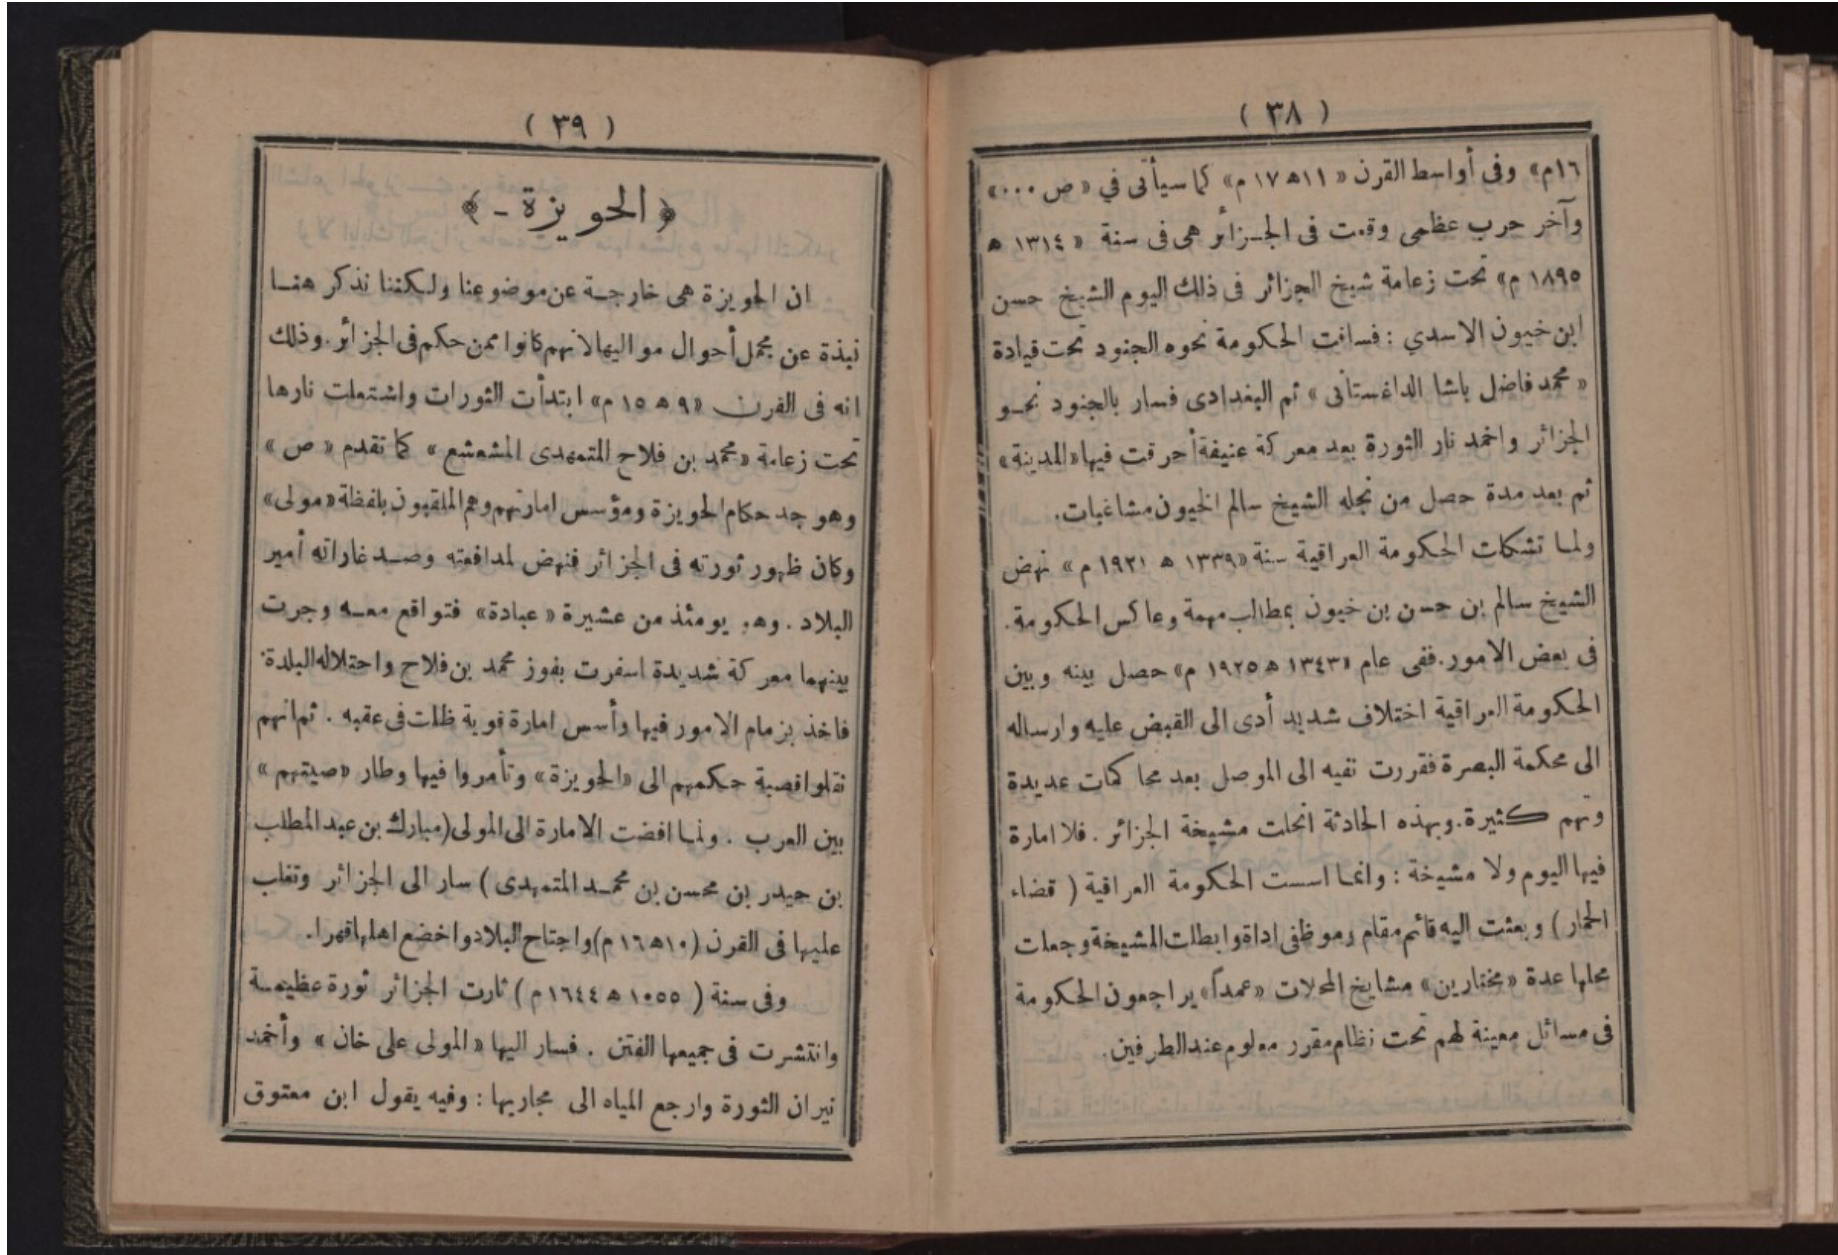 ( ٣٨ )
١٦م» وفى أواسط القرن « ١١ه ١٧ م» كما سيأتى في « ص ٠٠٠»
وآخر حرب عظمى وقعت فى الجـزائر هى فى سنة « ١٣١٤ ه
١٨٩٥ م» تحت زعامة شيخ الجزائر فى ذلك اليوم الشيخ حسن
ابن خيون الاسدي : فساقت الحكومة نحوه الجنود تحت قيادة
« محمد فاضل باشا الداغستانى » ثم البغدادى فسار بالجنود نحـو
الجزائر واخمد نار الثورة بعد معركة عنيفة أحرقت فيها «المدينة»
ثم بعد مدة حصل من نجله الشيخ سالم الخيون مشاغبات.
ولمـا تشكلت الحكومة العراقية سنة «١٣٣٩ ه ١٩٢١ م» نهض
الشيخ سالم بن حسن بن خيون بمطالب مهمة وعاكس الحكومة.
فى بعض الامور. ففى عام «١٣٤٣ ه ١٩٢٥ م» حصل بينه وبين
الحكومة العراقية اختلاف شديد أدى الى القبض عليه وارساله
الى محكمة البصرة فقررت نفيه الى الموصل بعد محاكمات عديدة
وتهم كثيرة. وبهذه الحادثة انحلت مشيخة الجزائر . فلا امارة
فيها اليوم ولا مشيخة : وانمـا اسست الحكومة العراقية ( قضاء
الحمار ) وبعثت اليه قائم مقام وموظفى اداة وابطلت المشيخة وجعلت
محلها عدة «مختارين» مشايخ المحلات «عمداً» يراجعون الحكومة
فى مسائل معينة لهم تحت نظام مقرر معلوم عند الطرفين.
( ٣٩ )
﴿ الحويزة - ﴾
ان الحويزة هى خارجـة عن موضوعنا ولكننا نذكر هنـا
نبذة عن مجمل أحوال مواليها لانهم كانوا ممن حكم فى الجزائر. وذلك
انه فى القرن «٩ ه ١٥ م» ابتدأت الثورات واشتعلت نارها
تحت زعامة «محمد بن فلاح المتمهدى المشعشع » كما تقدم « ص »
وهو جد حكام الحويزة ومؤسس امارتهم وهم الملقبون بلفظة «مولى»
وكان ظهور ثورته فى الجزائر فنهض لمدافعته وصـد غاراته أمير
البلاد . وهو يومئذ من عشيرة « عبادة» فتواقع معـه وجرت
بينهما معركة شديدة اسفرت بفوز محمد بن فلاح واحتلاله البلدة.
فاخذ بزمام الامور فيها وأسس امارة قوية ظلت فى عقبه . ثم انهم
نقلوا قصبة حكمهم الى «الحويزة» وتأمروا فيها وطار «صيتهم »
بين العرب . ولمـا افضت الامارة الى المولى (مبارك بن عبد المطلب
بن حيدر بن محسن بن محمـد المتمهدى ) سار الى الجزائر وتغلب
عليها فى القرن (١٠ه ١٦ م) واجتاح البلاد واخضع اهلها قهرا.
وفى سنة ( ١٠٥٥ ه ١٦٤٤ م ) ثارت الجزائر ثورة عظيمـة
وانتشرت فى جميعها الفتن . فسار اليها « المولى على خان » وأخمد
نيران الثورة وارجع المياه الى مجاريها : وفيه يقول ابن معتوق